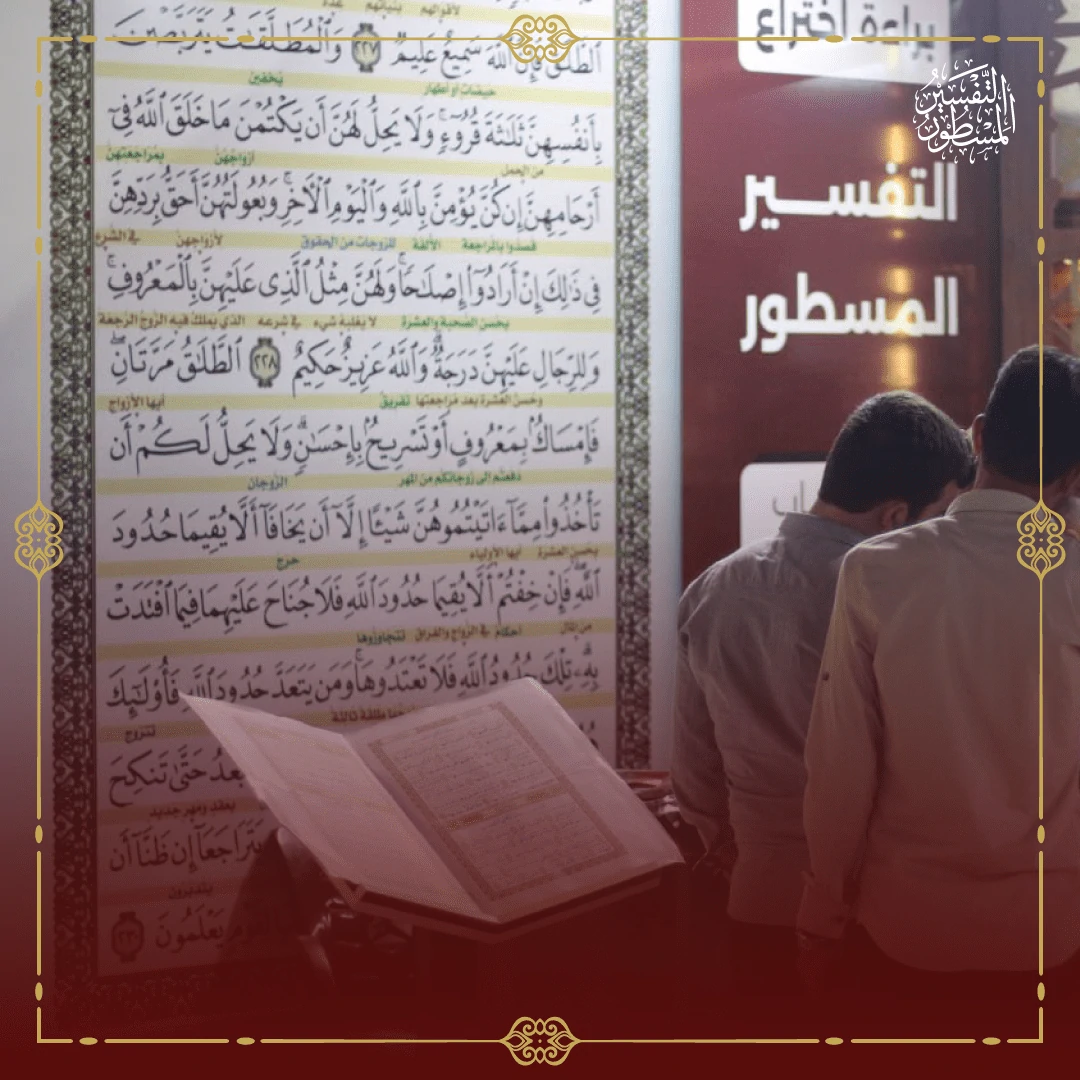 لأقوالهم بنياتهم عدة
ٱلطَّلَٰقَ فَإِنَّ ٱللَّهَ سَمِيعٌ عَلِيمٌ ٢٢٧ وَٱلْمُطَلَّقَٰتُ يَتَرَبَّصْنَ
حيضات أو أطهار يُخفين
بِأَنفُسِهِنَّ ثَلَٰثَةَ قُرُوٓءٍ ۚ وَلَا يَحِلُّ لَهُنَّ أَن يَكْتُمْنَ مَا خَلَقَ ٱللَّهُ فِىٓ
من الحمل أزواجهنّ بمراجعتهنّ
أَرْحَامِهِنَّ إِن كُنَّ يُؤْمِنَّ بِٱللَّهِ وَٱلْيَوْمِ ٱلْءَاخِرِ ۚ وَبُعُولَتُهُنَّ أَحَقُّ بِرَدِّهِنَّ
قصدوا بالمراجعة الألفة للزوجات من الحقوق لأزواجهنّ في الشرع
فِى ذَٰلِكَ إِنْ أَرَادُوٓا۟ إِصْلَٰحًا ۚ وَلَهُنَّ مِثْلُ ٱلَّذِى عَلَيْهِنَّ بِٱلْمَعْرُوفِ ۚ
بحسن الصحبة والعشرة لا يغلبه شيء في شرعه الذي يملك فيه الزوج الرجعة
وَلِلرِّجَالِ عَلَيْهِنَّ دَرَجَةٌ ۗ وَٱللَّهُ عَزِيزٌ حَكِيمٌ ٢٢٨ ٱلطَّلَٰقُ مَرَّتَانِ ۖ
وحسن العشرة بعد مراجعتها تفريقٌ أيها الأزواج
فَإِمْسَاكٌۢ بِمَعْرُوفٍ أَوْ تَسْرِيحٌۢ بِإِحْسَٰنٍ ۗ وَلَا يَحِلُّ لَكُمْ أَن
دفعتم إلى زوجاتكم من المهر الزوجان
تَأْخُذُوا۟ مِمَّآ ءَاتَيْتُمُوهُنَّ شَيْـًٔا إِلَّآ أَن يَخَافَآ أَلَّا يُقِيمَا حُدُودَ
بحسن العشرة أيها الأولياء حرج
ٱللَّهِ ۖ فَإِنْ خِفْتُمْ أَلَّا يُقِيمَا حُدُودَ ٱللَّهِ فَلَا جُنَاحَ عَلَيْهِمَا فِيمَا ٱفْتَدَتْ
من المال أحكام في الزواج والفراق تتجاوزوها
بِهِۦ ۗ تِلْكَ حُدُودُ ٱللَّهِ فَلَا تَعْتَدُوهَا ۚ وَمَن يَتَعَدَّ حُدُودَ ٱللَّهِ فَأُو۟لَٰٓئِكَ
طلقة ثالثة
تتزوج
بَعْدُ حَتَّىٰ تَنكِحَ
بعقد ومهر جديد
يَتَرَاجَعَآ إِن ظَنَّآ أَن
يتدبرون
يَعْلَمُونَ ٢٣٠
براءة اختراع
التَّفْسِيرُ المَسْطُور
التفسير
المسطور